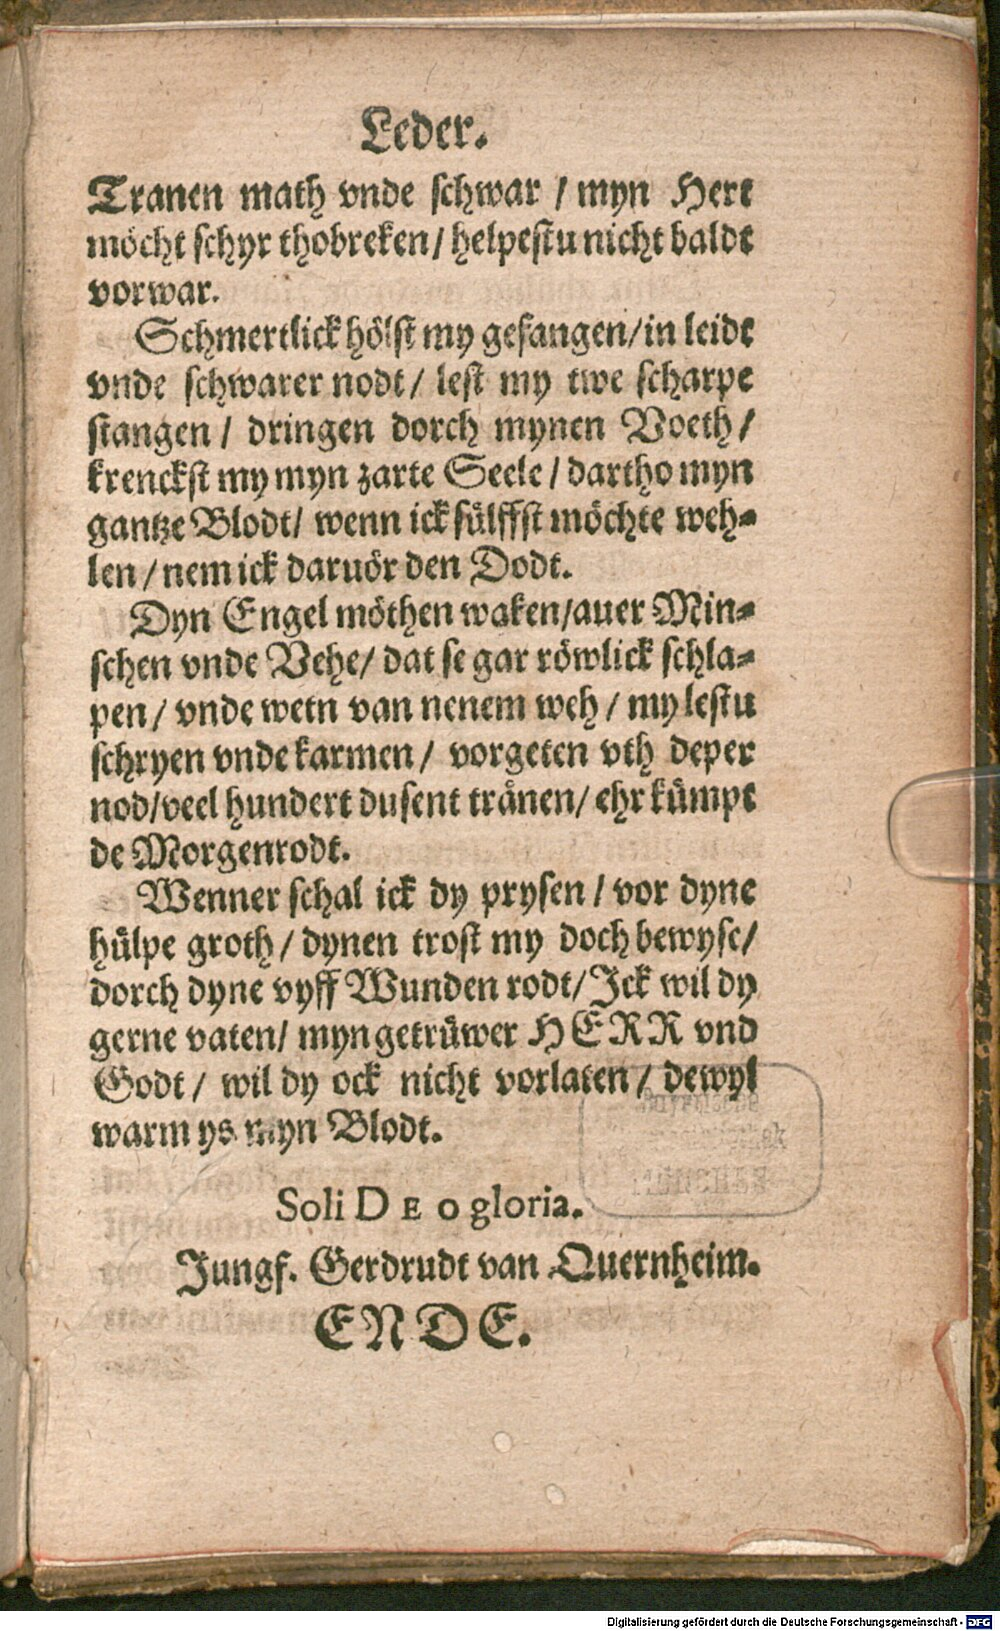 Leder.
Tranen math vnde schwar / myn Hert
möcht schyr thobreken / helpestu nicht baldt
vorwar.
Schmertlick hölst my gefangen / in leide
vnde schwarer nodt / lest my twe scharpe
stangen / dringen dorch mynen Voeth /
krenckst my myn zarte Seele / dartho myn
gantze Blodt / wenn ick sülffst möchte weh⸗
len / nem ick daruör den Dodt.
Dyn Engel möthen waken / auer Min⸗
schen vnde Vehe / dat se gar röwlick schla⸗
pen / vnde wetn van nenem weh / my lestu
schryen vnde karmen / vorgeten vth deper
nod / veel hundert dusent tränen / ehr kümpt
de Morgenrodt.
Wenner schal ick dy prysen / vor dyne
hülpe groth / dynen trost my doch bewyse /
dorch dyne vyff Wunden rodt / Ick wil dy
gerne vaten / myn getrüwer HERR vnd
Godt / wil dy ock nicht vorlaten / dewyl
warm ys myn Blodt.
Soli DEO gloria.
Jungf. Gerdrudt van Quernheim.
ENDE.
Digitalisierung gefördert durch die Deutsche Forschungsgemeinschaft - DFG